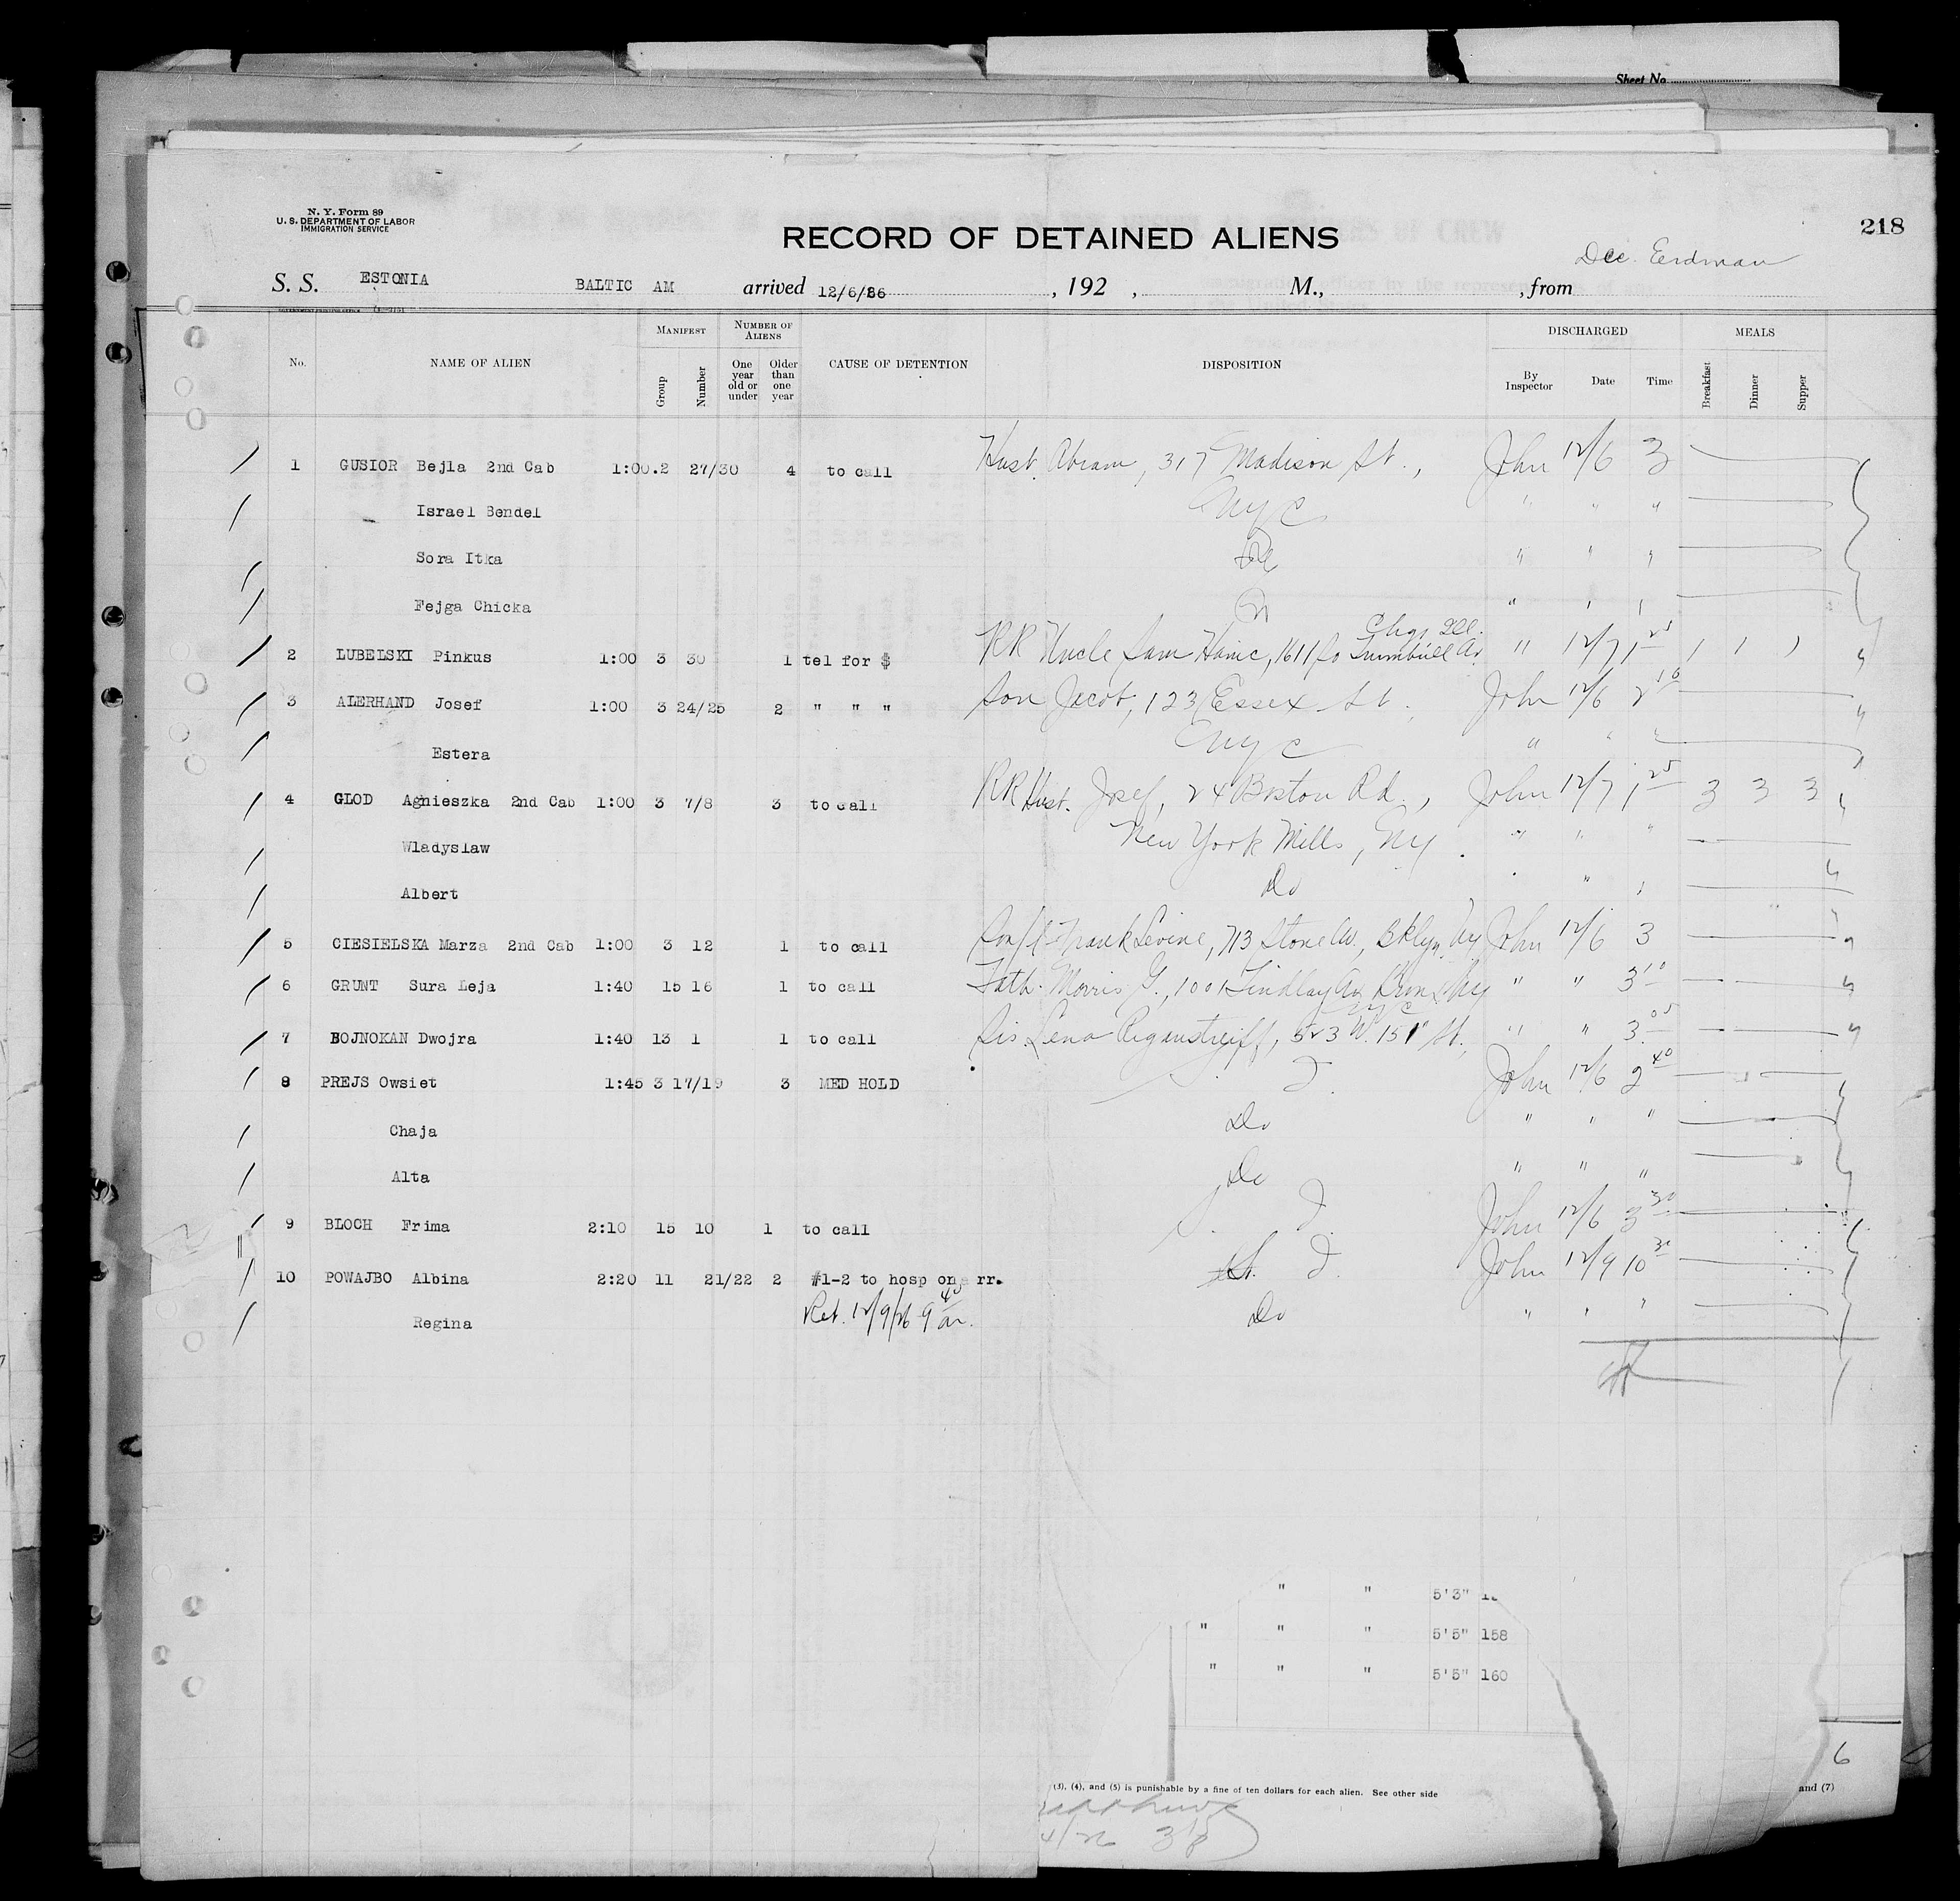 Sheet No.
N. Y. Form 89
U. S. DEPARTMENT OF LABOR
IMMIGRATION SERVICE
218
RECORD OF DETAINED ALIENS
Erdman
S. S. ESTONIA BALTIC AM arrived 12/6/26, 192 , M., , from
No. NAME OF ALIEN MANIFEST Group Number NUMBER OF ALIENS One year old or under Older than one year CAUSE OF DETENTION DISPOSITION DISCHARGED By Inspector Date Time MEALS Breakfast Dinner Supper
1 GUSIOR Bejla 2nd Cab 1:00.2 27/30 4 to call Husb. Abram, 317 Madison St., John 12/6 3
Israel Bendel NYC " " "
Sora Itka Do " " "
Fejga Chicka " " "
Chgo Ill.
2 LUBELSKI Pinkus 1:00 3 30 1 tel for $ RR Uncle Sam Haine, 1611 So Trumbull Av. " 12/7 1 25 1 1 1
3 ALERHAND Josef 1:00 3 24/25 2 " " " Son Jacob, 123 Essex St., John 12/6 2 10
Estera NYC " " "
4 GLOD Agnieszka 2nd Cab 1:00 3 7/8 3 to call RR Husb. Josef, 24 Boston Rd., John 12/7 1 25 3 3 3
Wladyslaw New York Mills, NY. " " "
Albert Do " " "
5 CIESIELSKA Marza 2nd Cab 1:00 3 12 1 to call Frank Levine, 713 Stone Av., Bklyn, Ny John 12/6 3
6 GRUNT Sura Leja 1:40 15 16 1 to call Fath. Morris G., 1001 Findlay Av Bronx Ny " " 3 10
NYC
7 BOJNOKAN Dwojra 1:40 13 1 1 to call Sis. Lena 523 W. 151" St., " " 3 05
8 PREJS Owsiet 1:45 3 17/19 3 MED HOLD S. I. John 12/6 2 40
Chaja Do " " "
Alta Do " " "
9 BLOCH Frima 2:10 15 10 1 to call S. I. John 12/6 3 30
10 POWAJBO Albina 2:20 11 21/22 2 #1-2 to hosp on arr. I. John 12/9 10 30
Regina Ret. 12/9/26 9 40 am. Do " " "
" " 5'3"
" " " 5'5" 158
" " " 5'5" 160
6
(3), (4), and (5) is punishable by a fine of ten dollars for each alien. See other side and (7)
4/26 318